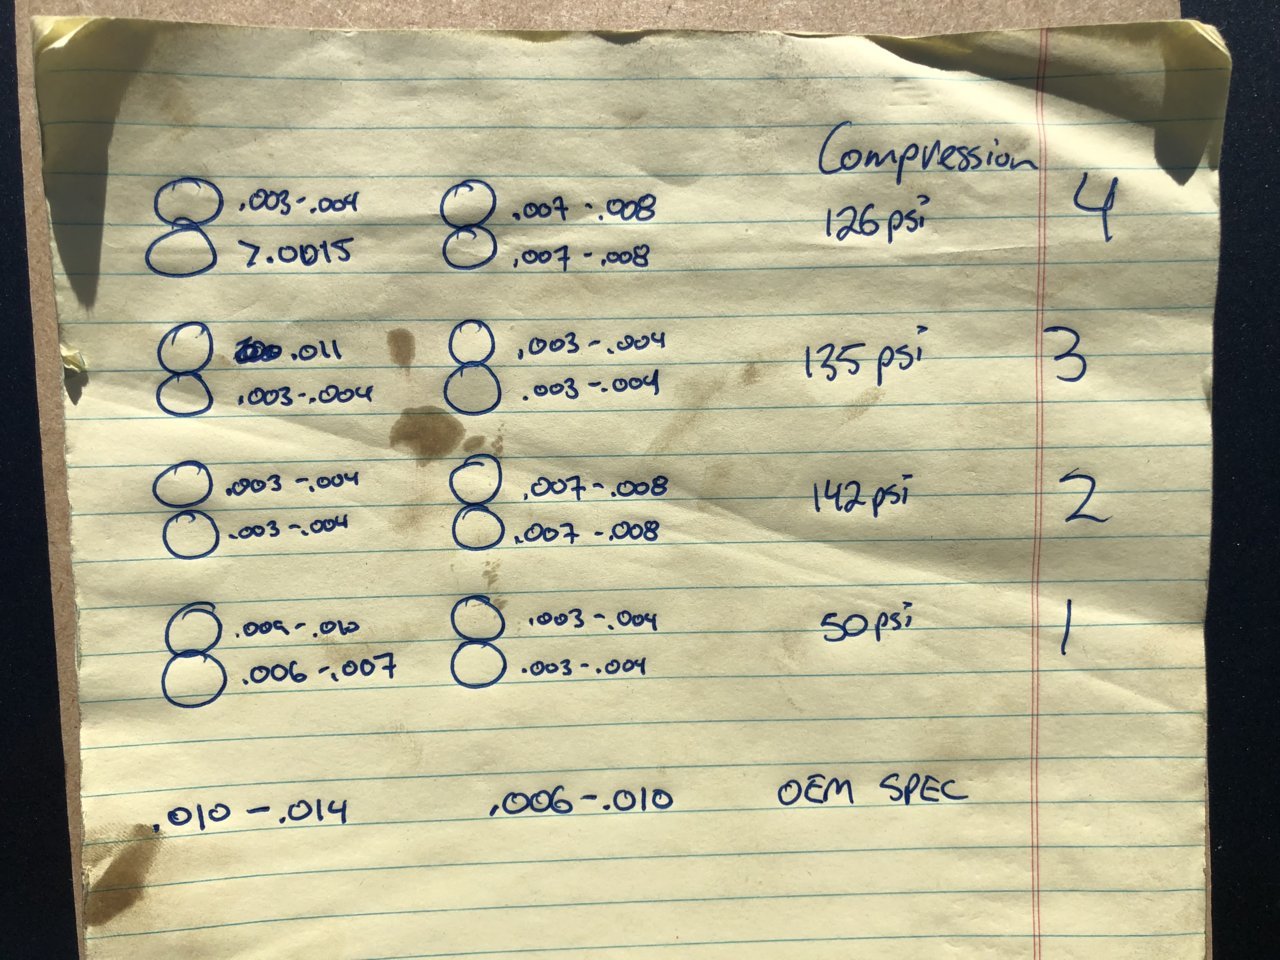 Compression
.003-.004 .007-.008 126psi 4
>.0015 .007-.008
.011 .003-.004 135psi 3
.003-.004 .003-.004
.003-.004 .007-.008 142psi 2
.003-.004 .007-.008
.009-.010 .003-.004 50psi 1
.006-.007 .003-.004
.010-.014 .006-.010 OEM SPEC